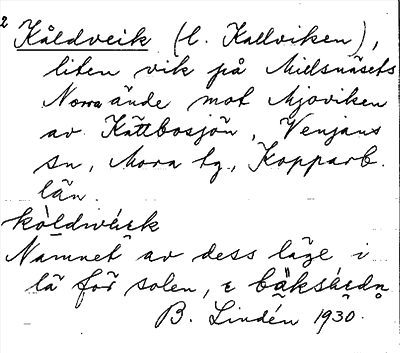 2
Kåldveik (l. Kallviken),
liten vik på Midsnäsets
Norra ände mot Mjoviken
av Kättbosjön, Venjans
sn, Mora tg., Kopparb.
län.
kòldwèik
Namnet av dess läge i
lä för solen, ɛ
B. Lindén 1930.